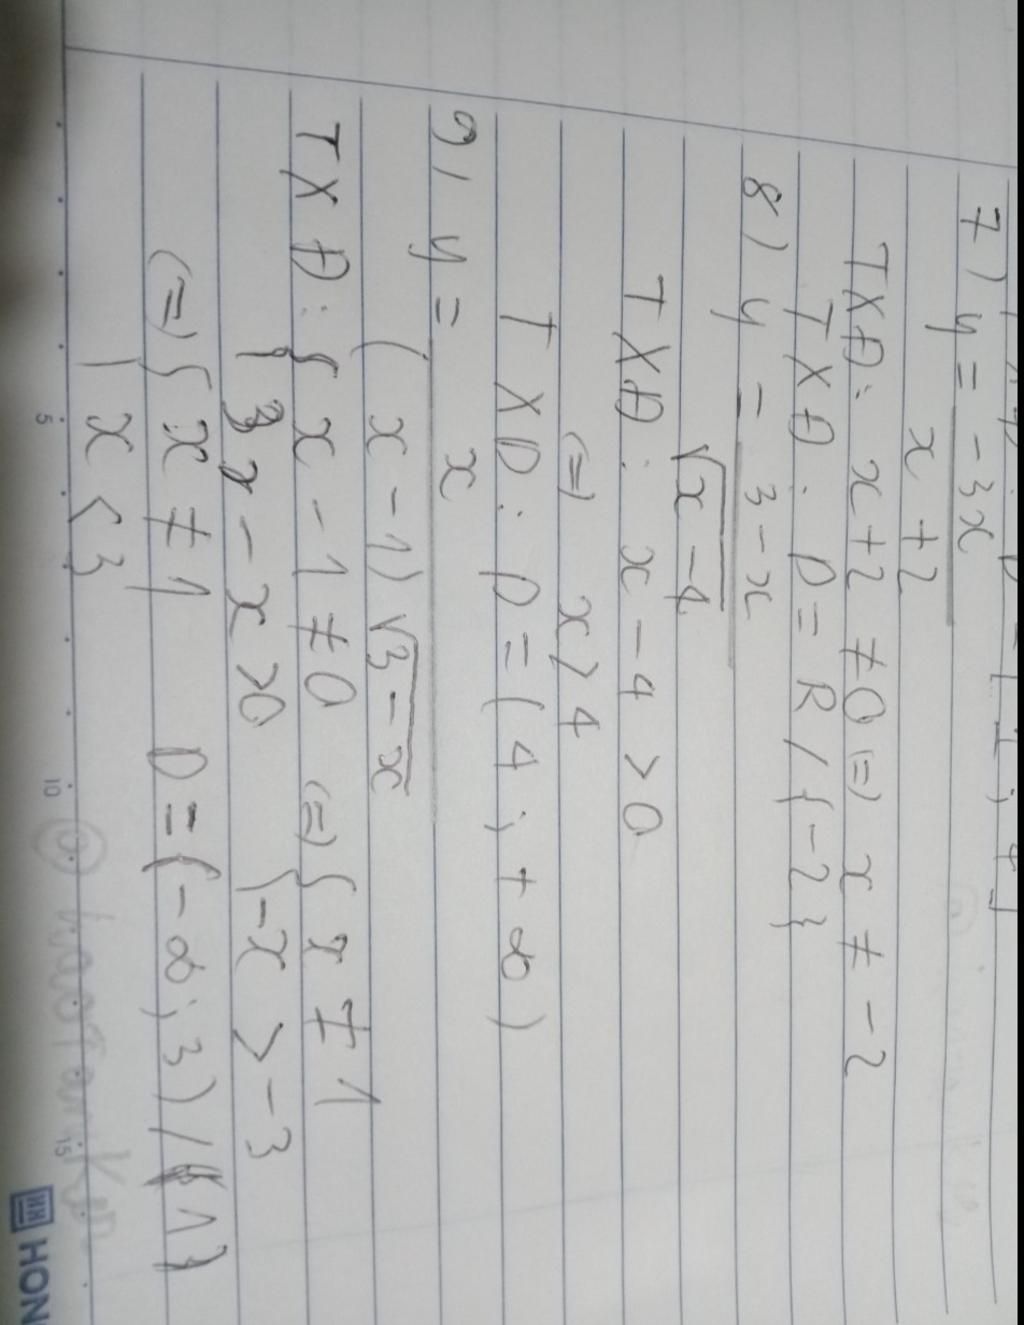 7) y = -3x
x + 2
TXĐ: x+2 ≠ 0 (=) x ≠ -2
TXĐ. D = R / {-2}
8) y = 3-x
√x-4
TXĐ: x - 4 > 0
(=) x > 4
TXD: D = (4; +∞)
9) y = x
(x-1) √3-x
TXĐ: { x - 1 ≠ 0 (=) { x ≠ 1
{ 3 - x > 0 { -x > -3
(=) { x ≠ 1 D = (-∞; 3) / {1}
x < 3
5 10 15
HON